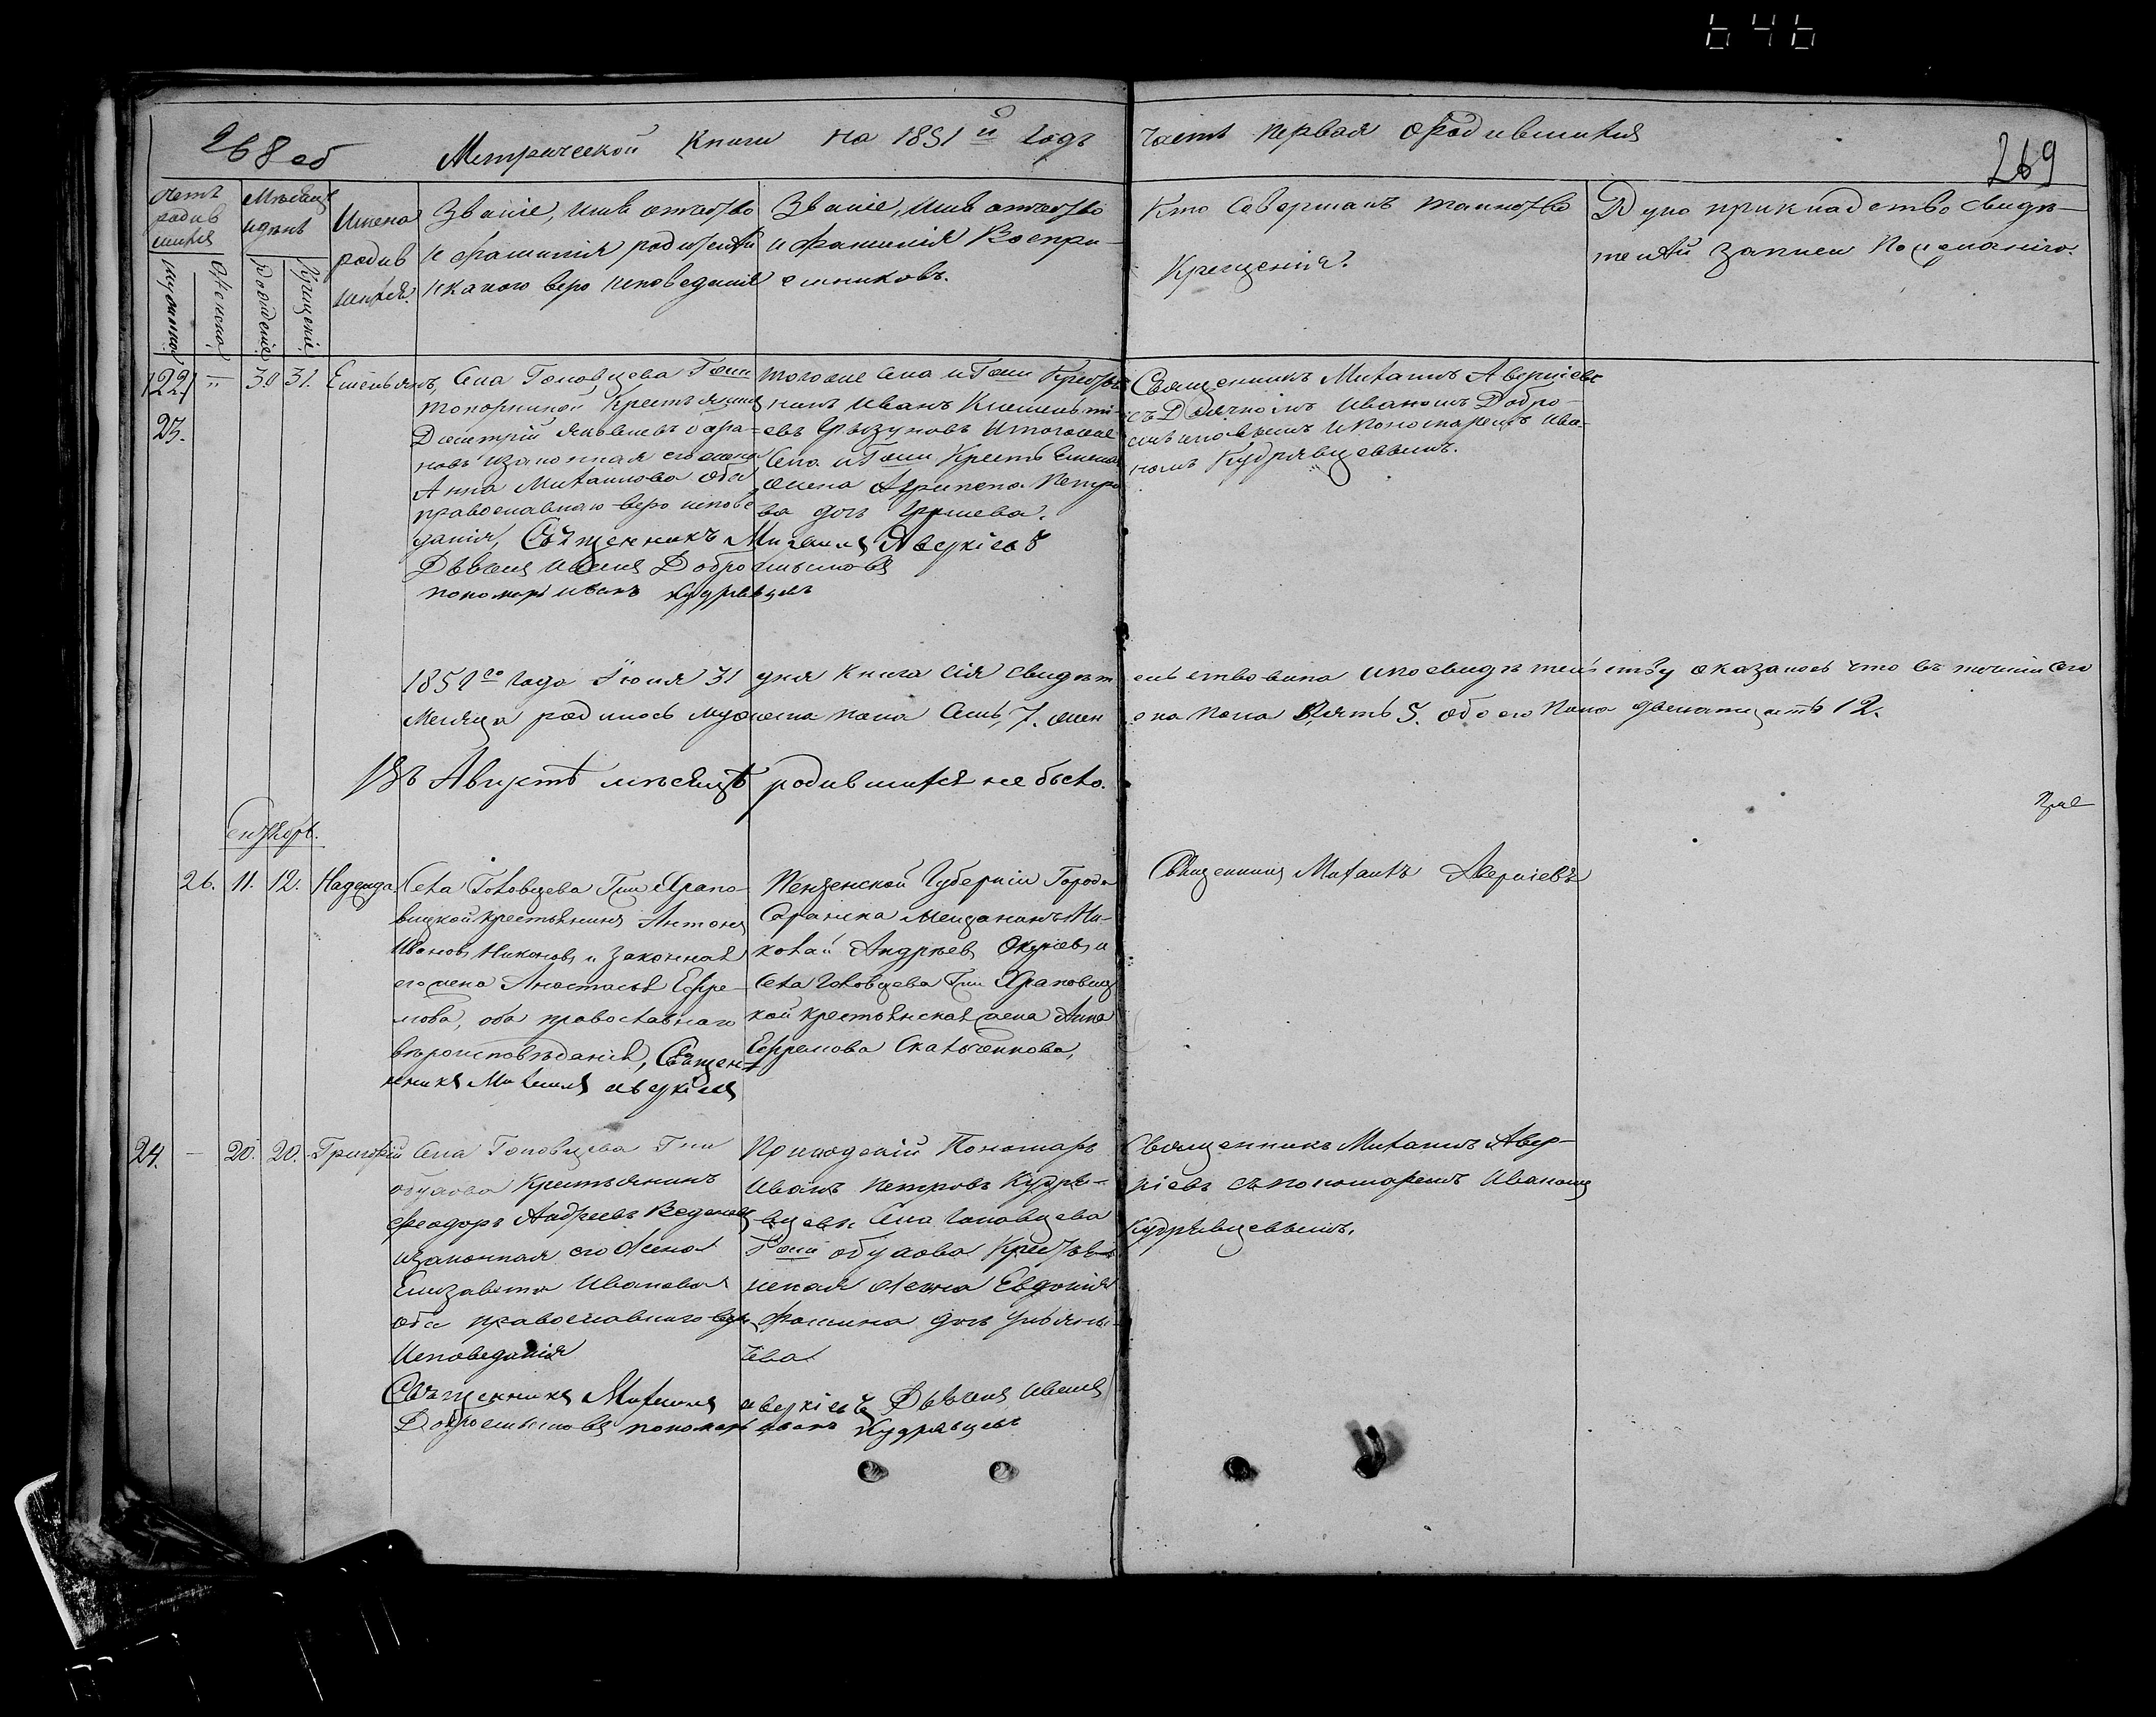 646
268 об
Метрической Книги на 1851 й Годъ
часть первая о родившихся
269
родив
шихся
Месяцъ
и день
Имена
родив
шихся.
Званіе, имя отчество
и фамилія родителей
и какого веро исповеданія
Званіе, имя отчество
и фамилія Воспри-
емниковъ.
Кто Совершалъ таинство
Крещенія?
Руко прикладство свидѣ-
телей записи По желанію.
рожденіе
Крещеніе
23.
"
30
31.
Емельянъ,
Села Головцева Гжи
Крестьянинъ
Дмитрій Яковлевъ
и законная его жена
Анна Михаилова оба
православнаго веро испове
данія, Священникъ Михаилъ Аверкіевъ
Дьячекъ Иванъ Добросмысловъ
пономарь иванъ кудрявцевъ
тогоже Села и Гжи Крестья
нинъ Иванъ
евъ Грызуновъ и тогоже
Села и Гжи Крестьянска
жена Агрипена Петро
ва дочь
Священникъ Михаилъ Аверкіевъ
съ Дьячкомъ Иваномъ Добро-
смысловымъ и Пономаремъ Ива-
номъ Кудрявцевымъ.
1851 го Года Іюля 31 дня Книга сія свидѣтельствована и по свидѣтельству оказалось что въ теченіи сего
Месяца родилось мужеска пола Семь, 7. женска пола Пять 5. обоего Пола двенатцать 12.
Въ Августѣ мѣсяцѣ родившихся не было.
Сентябрь.
26.
11.
12.
Надежда
Села Головцева Гжи Храпо-
вицкой крестьянинъ Антонъ
Ивановъ Никоновъ и законная
его жена Анастасья Ефре-
мова, оба православнаго
вѣроисповѣданія, Священ-
никъ Михаилъ аверкіевъ
Пензенской Губерніи Города
Саранска мещанинъ Ни-
колай Андрѣевъ и
Села Головцева Гжи Храповиц
кой крестьянская жена Анна
Ефремова
Священникъ Михаилъ Аверкіевъ
24.
-
20.
20.
Григорій
Села Головцева Гжи
обухова Крестьянинъ
Феодоръ Андреевъ
и законная его Жена
Елизавета Иванова
оба православнаго веро
Исповеданія
Священникъ Михаилъ аверкіевъ Дьячекъ Иванъ
Добросмысловъ пономарь иванъ Кудрявцевъ
Приходскій Пономарь
Иванъ Петровъ Кудря-
вцевъ Села Головцева
Гжи обухова Крестьян-
ская Жена Евдокія
Фомина дочь Ульяны-
чева
Священникъ Михаилъ Авер-
кіевъ съ пономаремъ Иваномъ
Кудрявцевымъ.